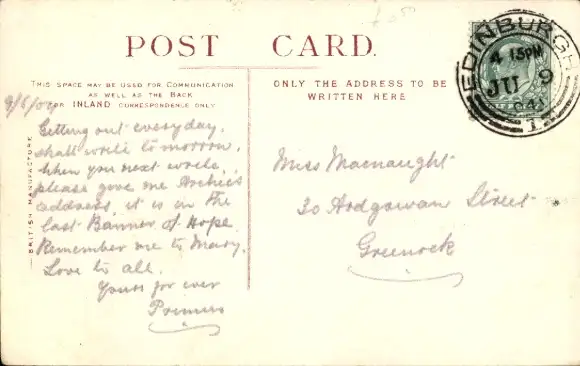 £
POST CARD.
THIS SPACE MAY BE USED FOR COMMUNICATION
AS WELL AS THE BACK
ON INLAND CORRESPONDENCE ONLY
ONLY THE ADDRESS TO BE
WRITTEN HERE
BRITISH MANUFACTURE
EDINBURGH
4 15PM
JU 9
Getting out everyday.
Shall write tomorrow.
When you next write
please give me Archie's
address, it is in the
last Banner of Hope.
Remember me to Mary.
Love to all.
Yours for ever
Miss Macnaught
30 Ardgowan Street
Greenock